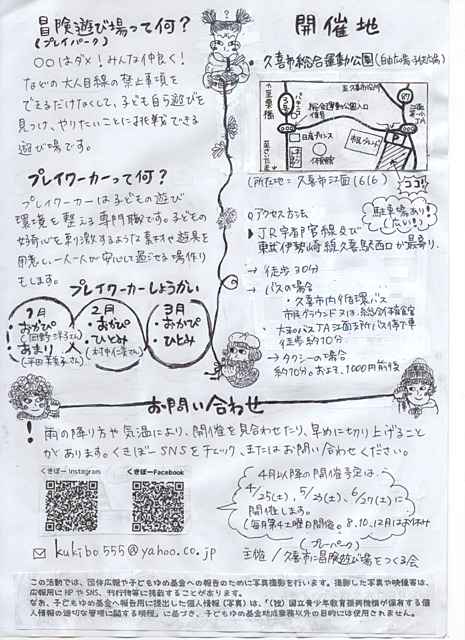 冒険遊び場って何?
(プレイパーク)
〇〇はダメ!みんな仲良く!
などの大人目線の禁止事項を
できるだけなくして、子ども自ら遊びを
見つけ、やりたいことに挑戦できる
遊び場です。
プレイワーカーって何?
プレイワーカーは子どもの遊び
環境を整える専門職です。子どもの
好奇心を刺激するような素材や遊具を
用意し、一人一人が安心して過ごせる場作り
もします。
プレイワーカーしょうかい
1月
・おかぴ
(岡野洋子さん)
・あまり
2月
・おかぴ
・ひとみ
3月
・おかぴ
・ひとみ
開催地
・久喜市総合運動公園
至久喜市役所
至栗橋
総合運動公園入口
信号
日産プリンス
体育館
市民グラウンド
P
JA
(所在地:久喜市江面1616)
ココ!
駐車場あり!
(広い!)
アクセス方法
▶JR宇都宮線及び
東武伊勢崎線久喜駅西口が最寄り。
→徒歩30分
→バスの場合
・久喜市内循環バス
市民グラウンド又は、総合体育館
・大和バス
徒歩約10分
→タクシーの場合
約10分。およそ、1000円前後
お問い合わせ
! 雨の降り方や気温により、開催を見合わせたり、早めに切り上げること
があります。くきぼーSNSをチェック、またはお問い合わせください。
くきぼー Instagram
くきぼーFacebook
4月以降の開催予定は、
4/25(土)、5/23(土)、6/27(土)に
開催します。
(毎月第4土曜日開催。8.10.12月はお休み)
kukibo555@yahoo.co.jp
(プレーパーク)
主催/久喜市に冒険遊び場をつくる会
この活動では、団体広報や子どもゆめ基金への報告のために写真撮影を行います。撮影した写真や映像等は、
広報用にHPやSNS、刊行物等に掲載することがあります。
なお、子どもゆめ基金へ報告用に提出した個人情報（写真）は、「（独）国立青少年教育振興機構が保有する個人
情報の適切な管理に関する規程」に基づき、子どもゆめ基金助成業務以外の目的には使用されません。